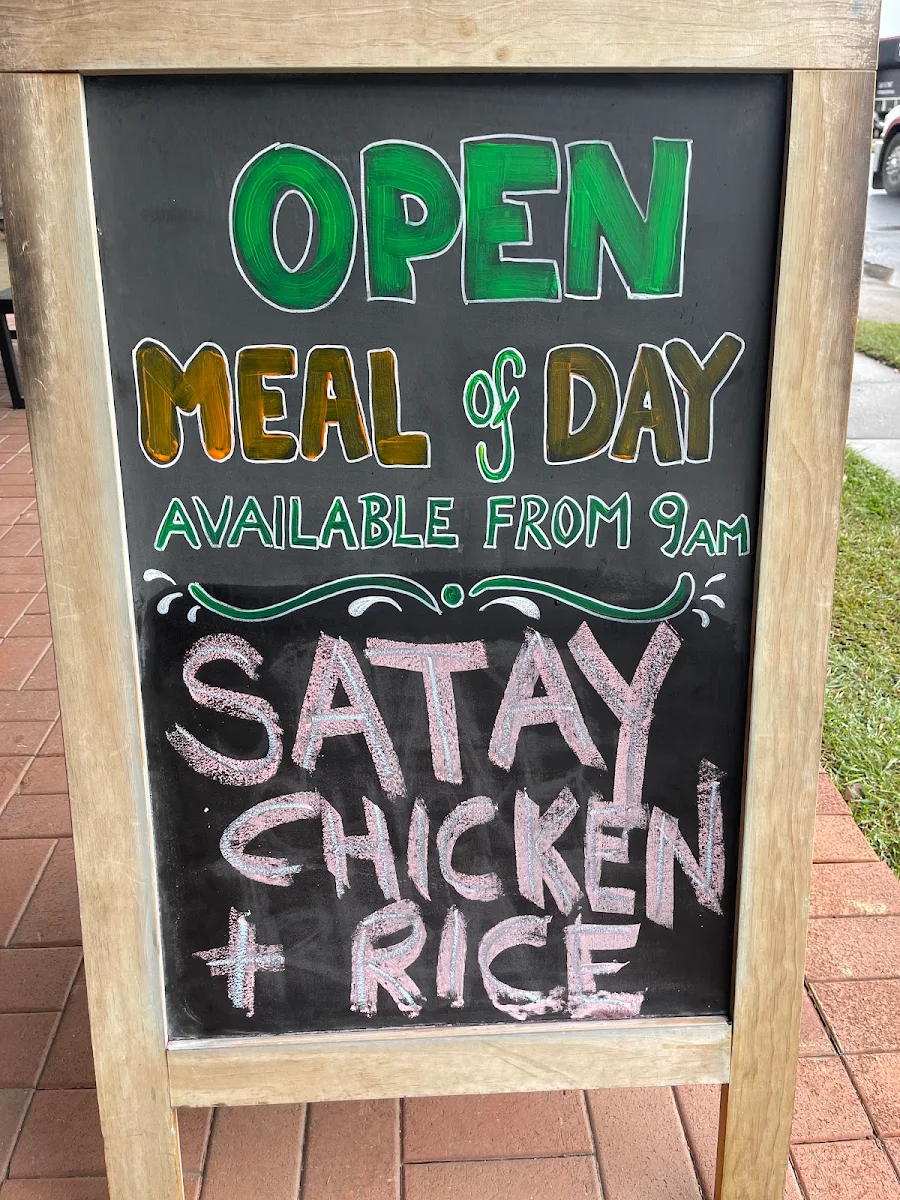 OPEN
MEAL of DAY
AVAILABLE FROM 9AM
SATAY
CHICKEN
+ RICE